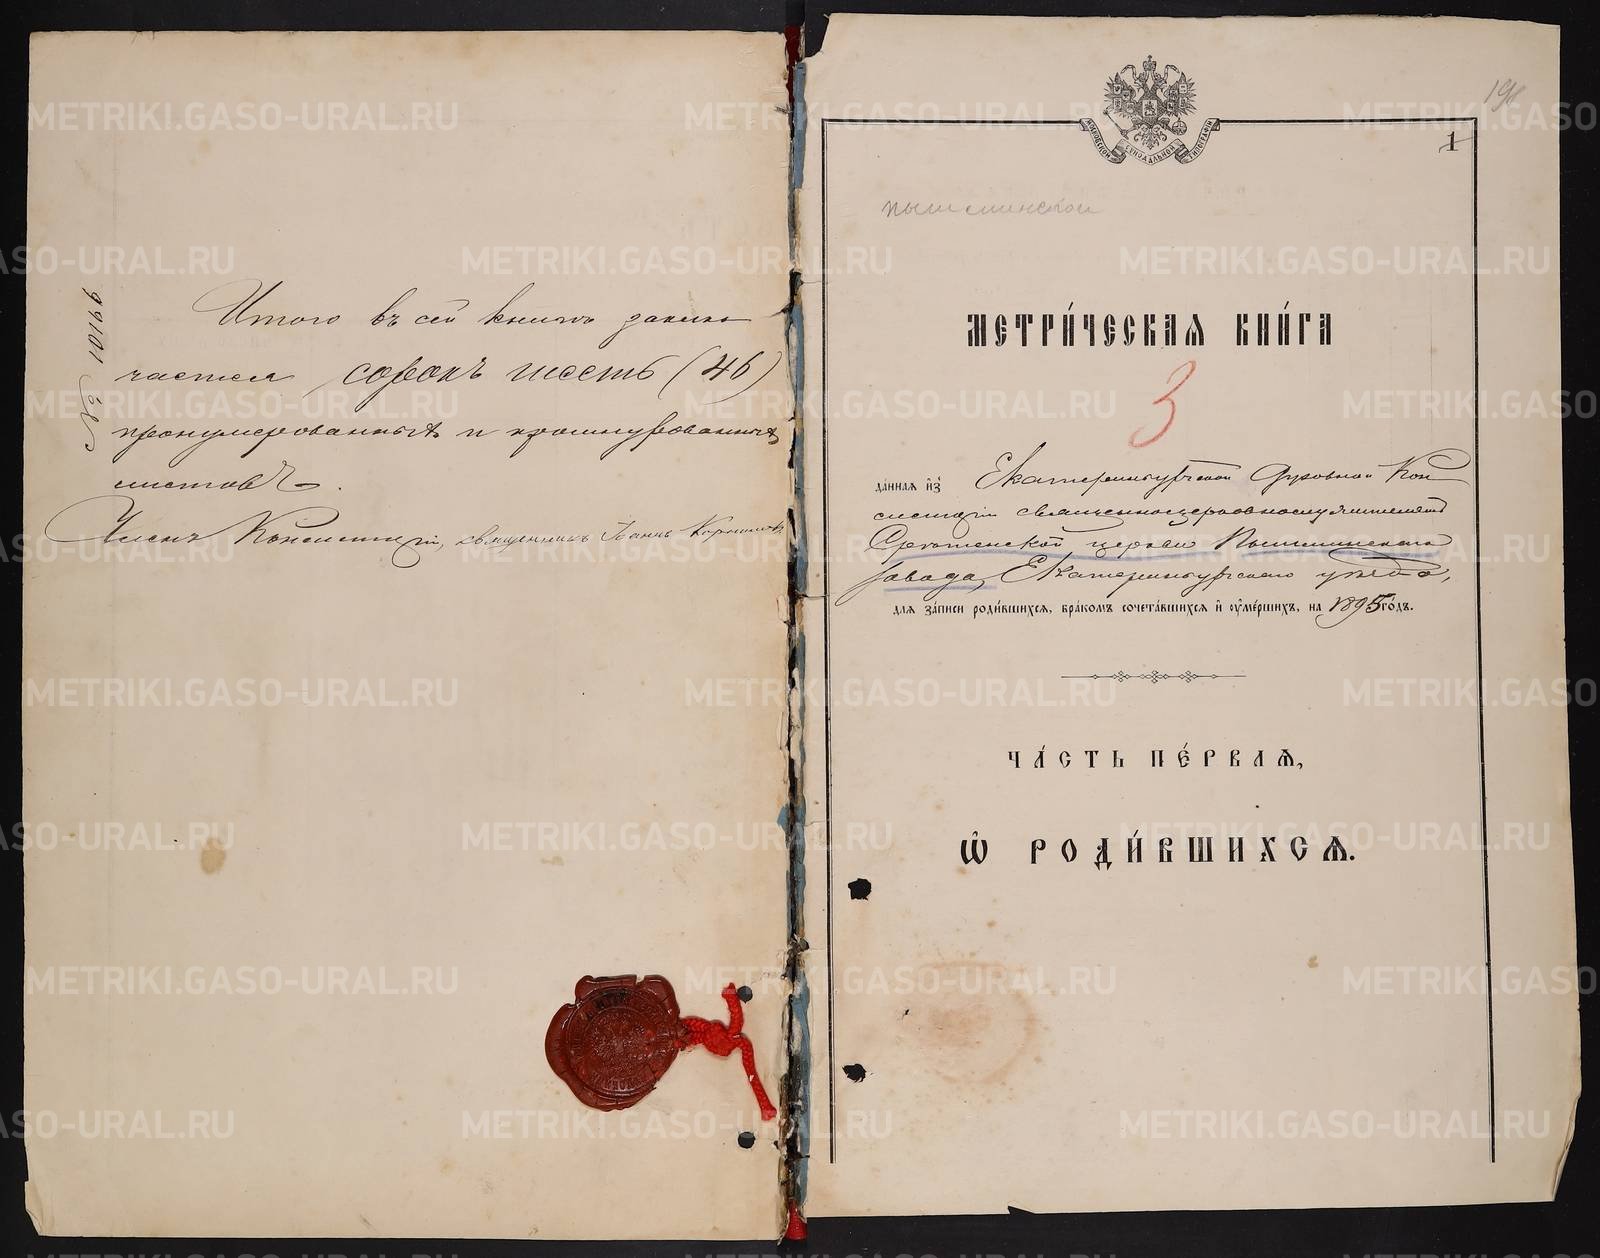 № 10166
Итого въ сей книгѣ заклю
чается сорокъ шесть (46)
пронумерованныхъ и прошнурованныхъ
листовъ.
Членъ Консисторіи, священникъ Іоаннъ
191
МОСКОВСКОЙ СѴНОДАЛЬНОЙ ТИПОГРАФІИ
1
пышминской
МЕТРИ́ЧЕСКАѦ КНИ́ГА
3
да́ннаѧ и҆з̾ Екатеринбургской Духовной Кон
систоріи священноцерковнослужителямъ
церкви Пышминскаго
завода, Екатеринбургскаго уѣзда,
длѧ за́писи роди́вшихсѧ, бра́комъ сочета́вшихсѧ и҆ ᲂу҆ме́ршихъ, на 1895 го́дъ.
ЧА́СТЬ ПЕ́РВАѦ,
Ѽ РОДИ́ВШИХСѦ.
METRIKI.GASO-URAL.RU